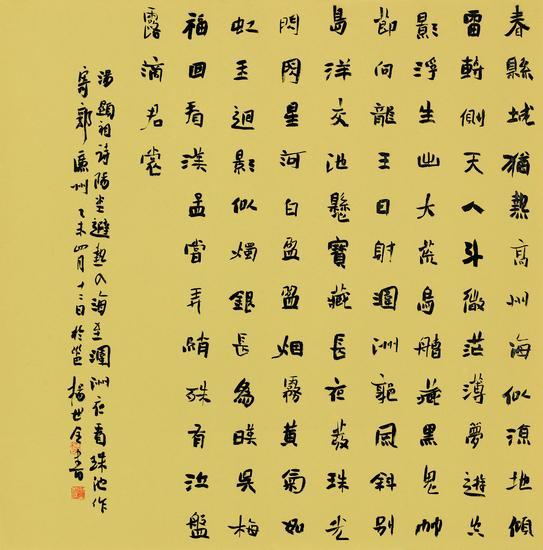 春縣城猶熱高州海似涼地傾
雷斡側天入斗微茫薄夢遊空
影浮生出大荒烏艚藏黑鬼竹
節向龍王日射潿洲郭風斜別
島洋交池懸寶藏長夜發珠光
閃閃星河白盈盈烟霧黃氣如
虹玉迥影似燭銀長為暎吳梅
福回看漢孟嘗弄綃殊有泣盤
露滴君裳
湯顯祖詩陽江避熱入海至潿洲夜看珠池作
寄郭廉州 乙未四月十二日於邕 楊世全書